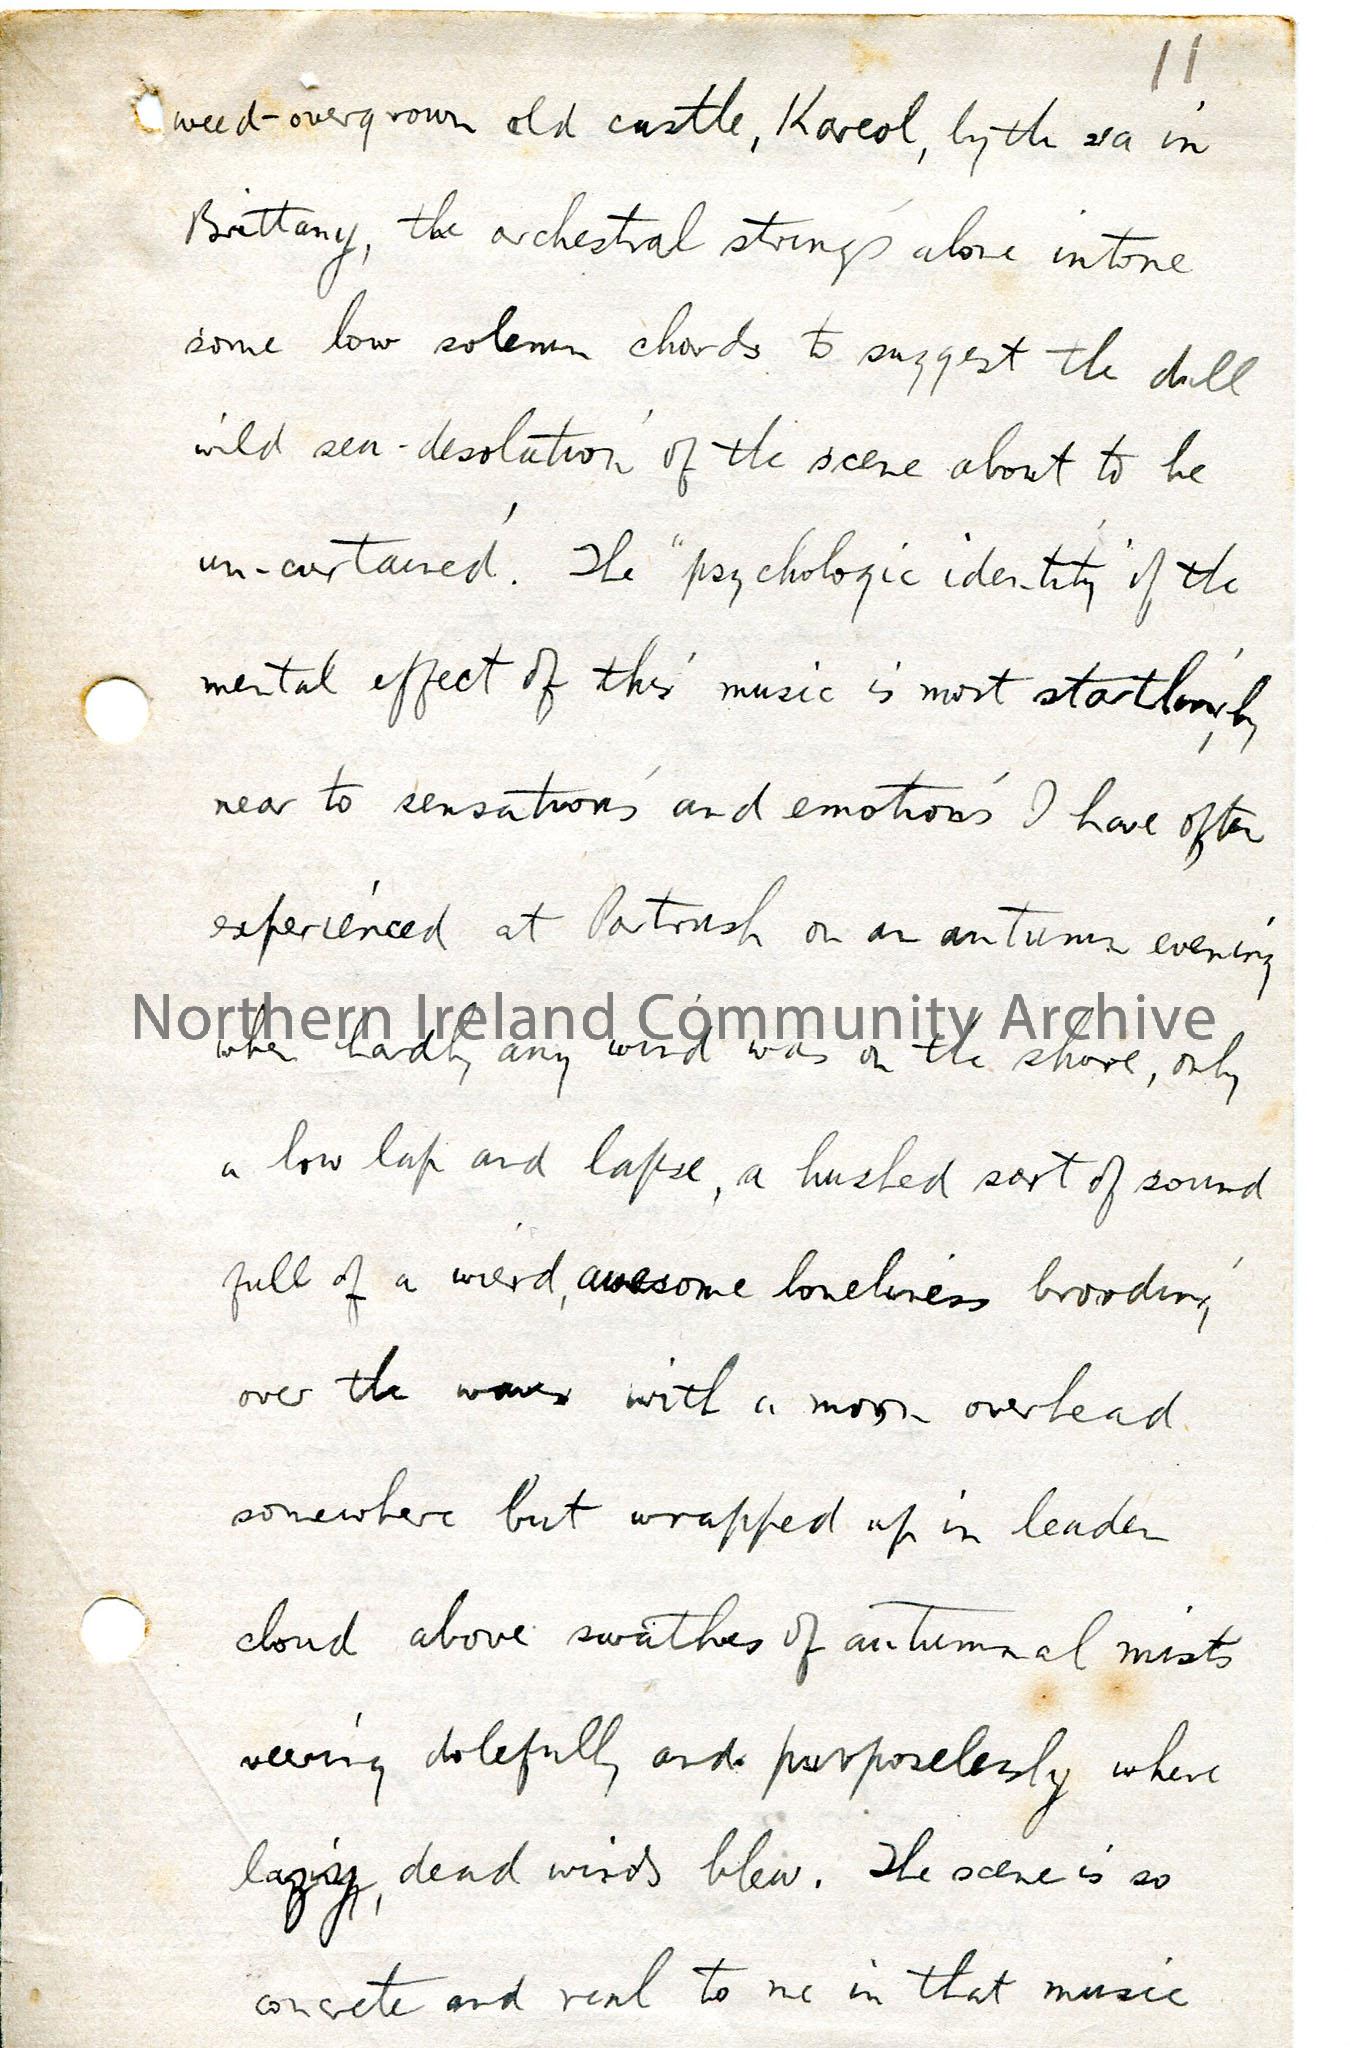 11
weed-overgrown old castle, Kareol, by the sea in
Brittany, the orchestral strings alone intone
some low solemn chords to suggest the dull
wild sea-desolation of the scene about to be
un-curtained. The "psychologic identity" of the
mental effect of this music is most startlingly
near to sensations and emotions I have often
experienced at Portrush on an autumn evening
Northern Ireland Community Archive
when hardly any wind was on the shore, only
a low lap and lapse, a hushed sort of sound
full of a wierd, awesome loneliness brooding
over the waves with a moon overhead
somewhere but wrapped up in leaden
cloud above swathes of autumnal mists
veering dolefully and purposelessly where
dead winds blew. The scene is so
concrete and real to me in that music